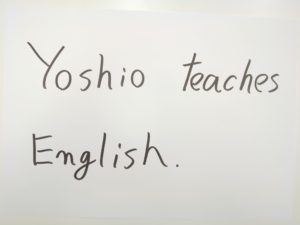 Yoshio teaches
English.